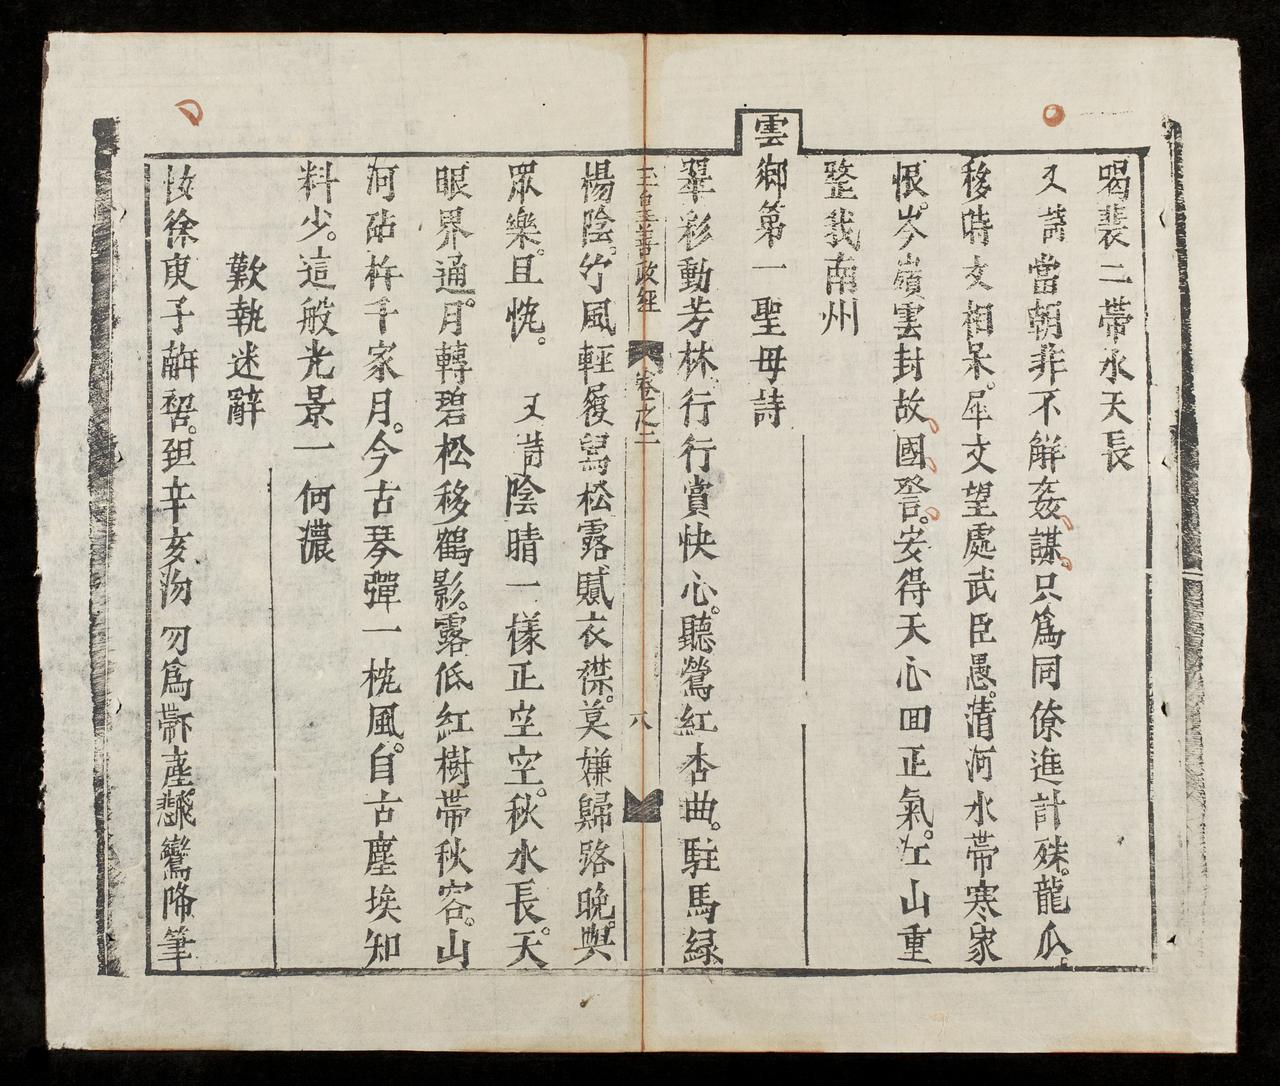 曷裴二帶水天長
又詩當朝非不解姦謀。只爲同僚進計殊。龍瓜。
移時文相呆。犀文望處武臣愚。清河水帶寒家
恨。岑嶺雲封故國。安得天心囬正氣。江山重
整我南州
雲鄉第一聖母詩
翠彩動芳林行行賞快心。聽鶯紅杏曲。駐馬綠
玉臺善政經 卷之二 八
楊陰。竹風輕履舃松露膩衣襟。莫嫌歸路晚。與
眾樂。且忱。 又詩陰晴一樣正空空。秋水長。天
眼界通。月轉碧松移鶴影。露低紅樹帶秋容。山
河砧杵千家月。今古琴彈一枕風。自古塵埃知
料少。這般光景一何濃
歎執迷辭
忮徐庚子。辛亥沕勿爲塵鸞降筆